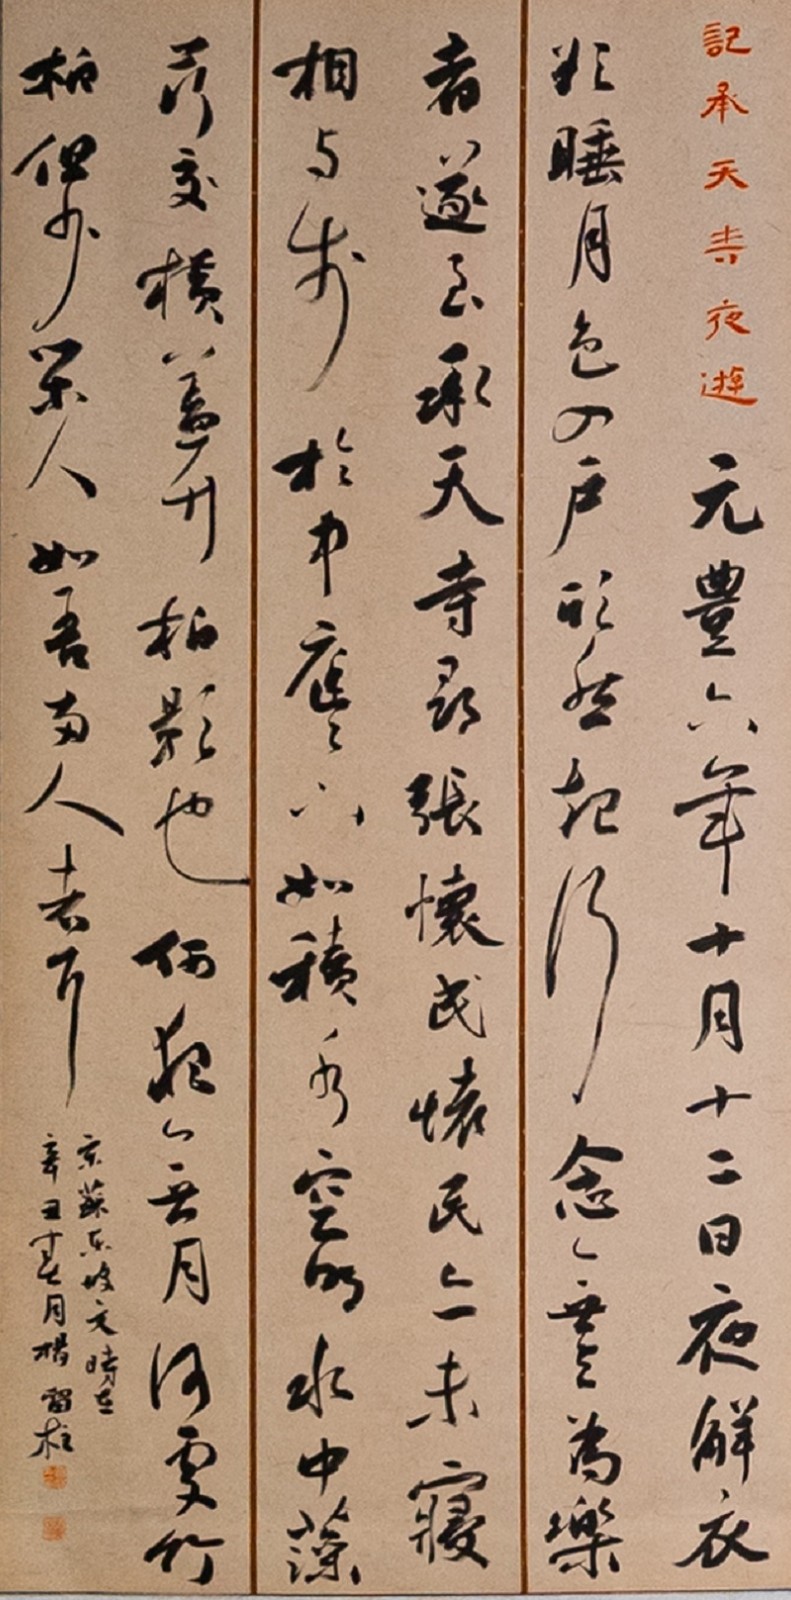 記承天寺夜遊
元豐六年十月十二日夜解衣
欲睡月色入戶欣然起行念無与為樂
者遂至承天寺尋張懷民懷民亦未寢
相与步於中庭〻下如積水空明水中藻
荇交橫蓋竹柏影也何夜無月何處竹
柏但少閑人如吾兩人者耳
宋蘇東坡文時在
辛丑春月楊留柱